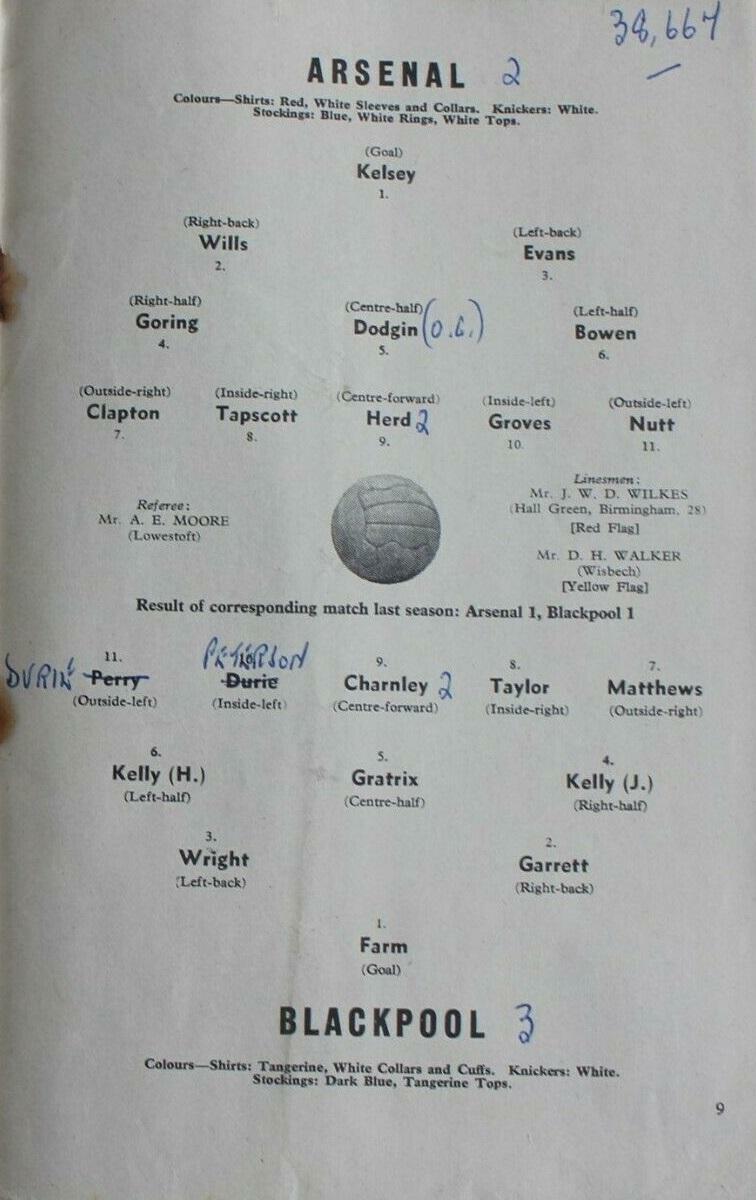 38,667
ARSENAL 2
Colours—Shirts: Red, White Sleeves and Collars. Knickers: White.
Stockings: Blue, White Rings, White Tops.
(Goal)
Kelsey
1.
(Right-back)
Wills
2.
(Left-back)
Evans
3.
(Right-half)
Goring
4.
(Centre-half)
Dodgin (O.G.)
5.
(Left-half)
Bowen
6.
(Outside-right)
Clapton
7.
(Inside-right)
Tapscott
8.
(Centre-forward)
Herd 2
9.
(Inside-left)
Groves
10.
(Outside-left)
Nutt
11.
Referee:
Mr. A. E. MOORE
(Lowestoft)
Linesmen:
Mr. J. W. D. WILKES
(Hall Green, Birmingham, 28)
[Red Flag]
Mr. D. H. WALKER
(Wisbech)
[Yellow Flag]
Result of corresponding match last season: Arsenal 1, Blackpool 1
11.
DURIE Perry
(Outside-left)
PETERSON
Durie
(Inside-left)
9.
Charnley 2
(Centre-forward)
8.
Taylor
(Inside-right)
7.
Matthews
(Outside-right)
6.
Kelly (H.)
(Left-half)
5.
Gratrix
(Centre-half)
4.
Kelly (J.)
(Right-half)
3.
Wright
(Left-back)
2.
Garrett
(Right-back)
1.
Farm
(Goal)
BLACKPOOL 3
Colours—Shirts: Tangerine, White Collars and Cuffs. Knickers: White.
Stockings: Dark Blue, Tangerine Tops.
9